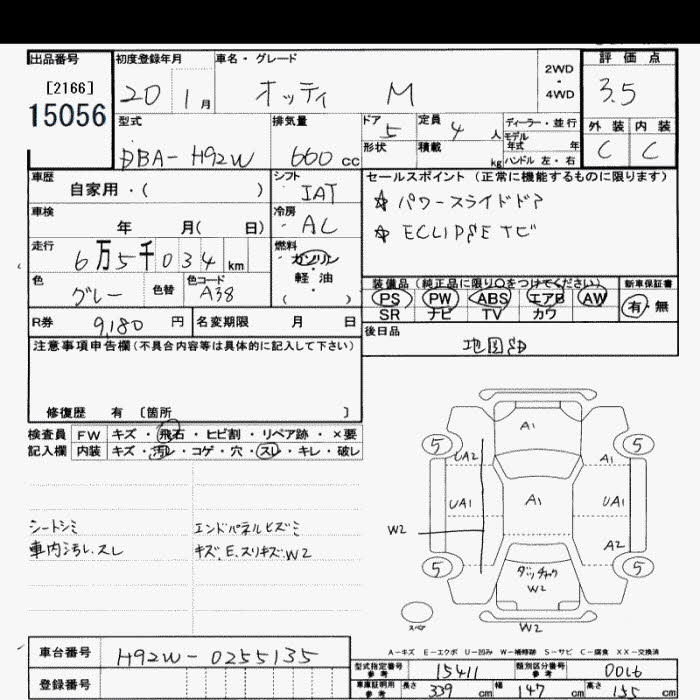 出品番号 初度登録年月 車名・グレード 2WD・4WD 評価点
[2166] 20 1月 オッティ M 3.5
15056
型式 排気量 ドア 5 定員 4人 ディーラー・並行 外装 内装
DBA-H92W 660cc 形状 積載 kg モデル年式 年 C C
ハンドル 左・右
車歴 シフト セールスポイント (正常に機能するものに限ります)
自家用・( ) IAT ☆ パワースライドドア
車検 冷房 ☆ ECLIPSE ナビ
年 月( 日) AC
走行 燃料
6万5千034km ガソリン
軽油
( )
色 色替 色コード 装備品 (純正品に限り○をつけてください) 新車保証書
グレー A38 PS PW ABS エアB AW 有・無
SR ナビ TV カワ
R券 9,180円 名変期限 月 日 後日品
地図SD
注意事項申告欄(不具合内容等は具体的に記入して下さい)
修復歴 有 〔箇所 〕
検査員 FW キズ・飛石・ヒビ割・リペア跡・×要
記入欄 内装 キズ・汚レ・コゲ・穴・スレ・キレ・破レ
シートシミ エンドパネルヒズミ
車内汚レ.スレ キズ.E.スリキズ.W2
A1
5 5
UA2 A1
UA1 A1 UA1
W2
A2
5 5
W2
スペア W2
A-キズ E-エクボ U-凹み W-補修跡 S-サビ C-腐食 XX-交換済
車台番号 H92W-0255135
登録番号
型式指定番号 参考 15411 類別区分番号 参考 0016
車庫証明用 参考 長さ 339cm 幅 147cm 高さ 155cm